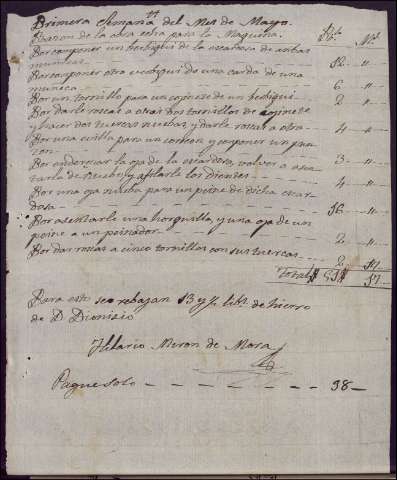 Primera Semana del Mes de Mayo.
Razon de la obra echa para la Maquina. Rs. Ms.
Por componer un berbiqui de la escarbosa de ambas
muniecas 12 "
Por componer otro berbiqui de una carda de una
muneca 6 "
Por un tornillo para un cojinete de un berbiqui 2 "
Por darle roscas a otros dos tornillos de cojinete
y hacer dos tuercas nuebas, y darle rosca a otro 4 "
Por una evilla para un correon, y componer un
Por enderezar la oja de la escardosa, volver a
tarle de nuebo, y afilarle los dientes 4 "
Por una oja nueba para un peine de dicha escar-
dosa 16 "
Por asentarle una horquilla, y una oja de un
peine a un peinador 2 "
Por dar roscas a cinco tornillos con sus tuercas 2 17
Total 17
Para esto se rebajan 13 y ½ libs. de hierro
de D. Dionisio
Hilario Miron de Mora
Pague solo 38